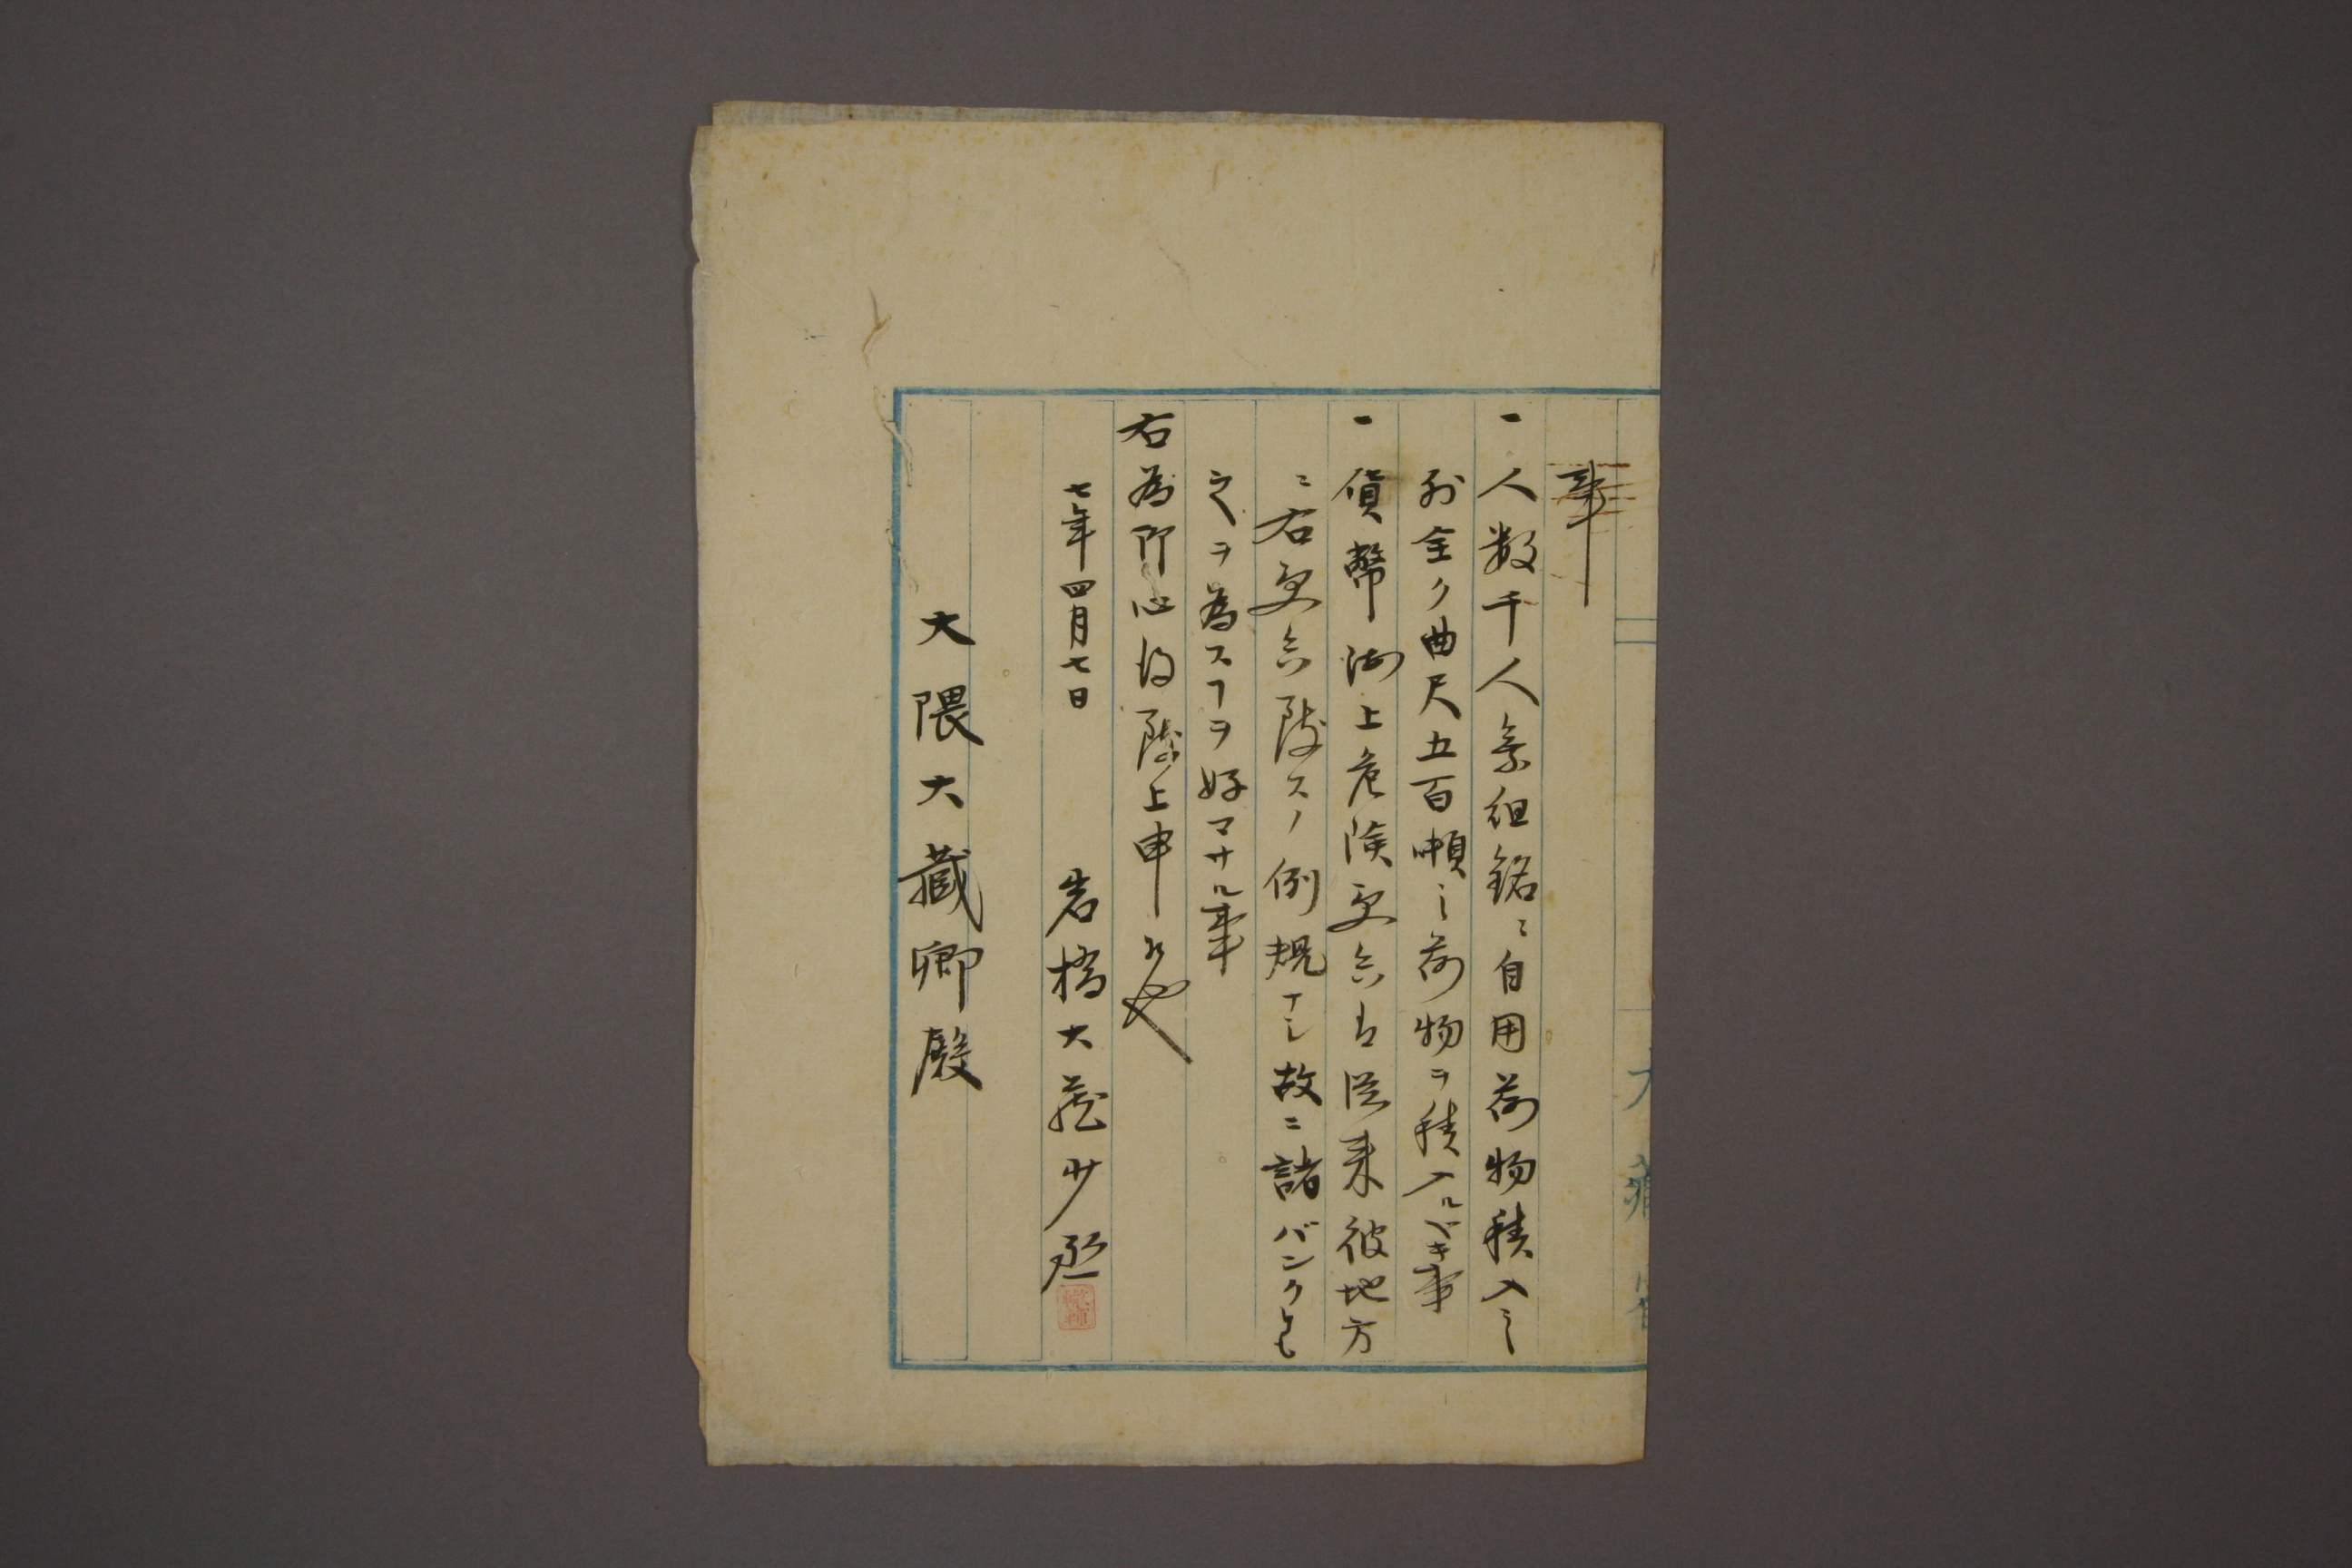 事
一人数千人乗組銘ニ自用荷物積入之
外全ク曲尺五百噸之荷物ヲ積入ルベキ事
一貨幣海上危険受合ハ従来彼地方
ニ右受合致スノ例規ナシ故ニ諸バンクトモ
之ヲ為スヿヲ好マサル事
右為御心得致上申候也
七年四月七日
岩橋大蔵少丞
大隈大蔵卿殿
大藏省